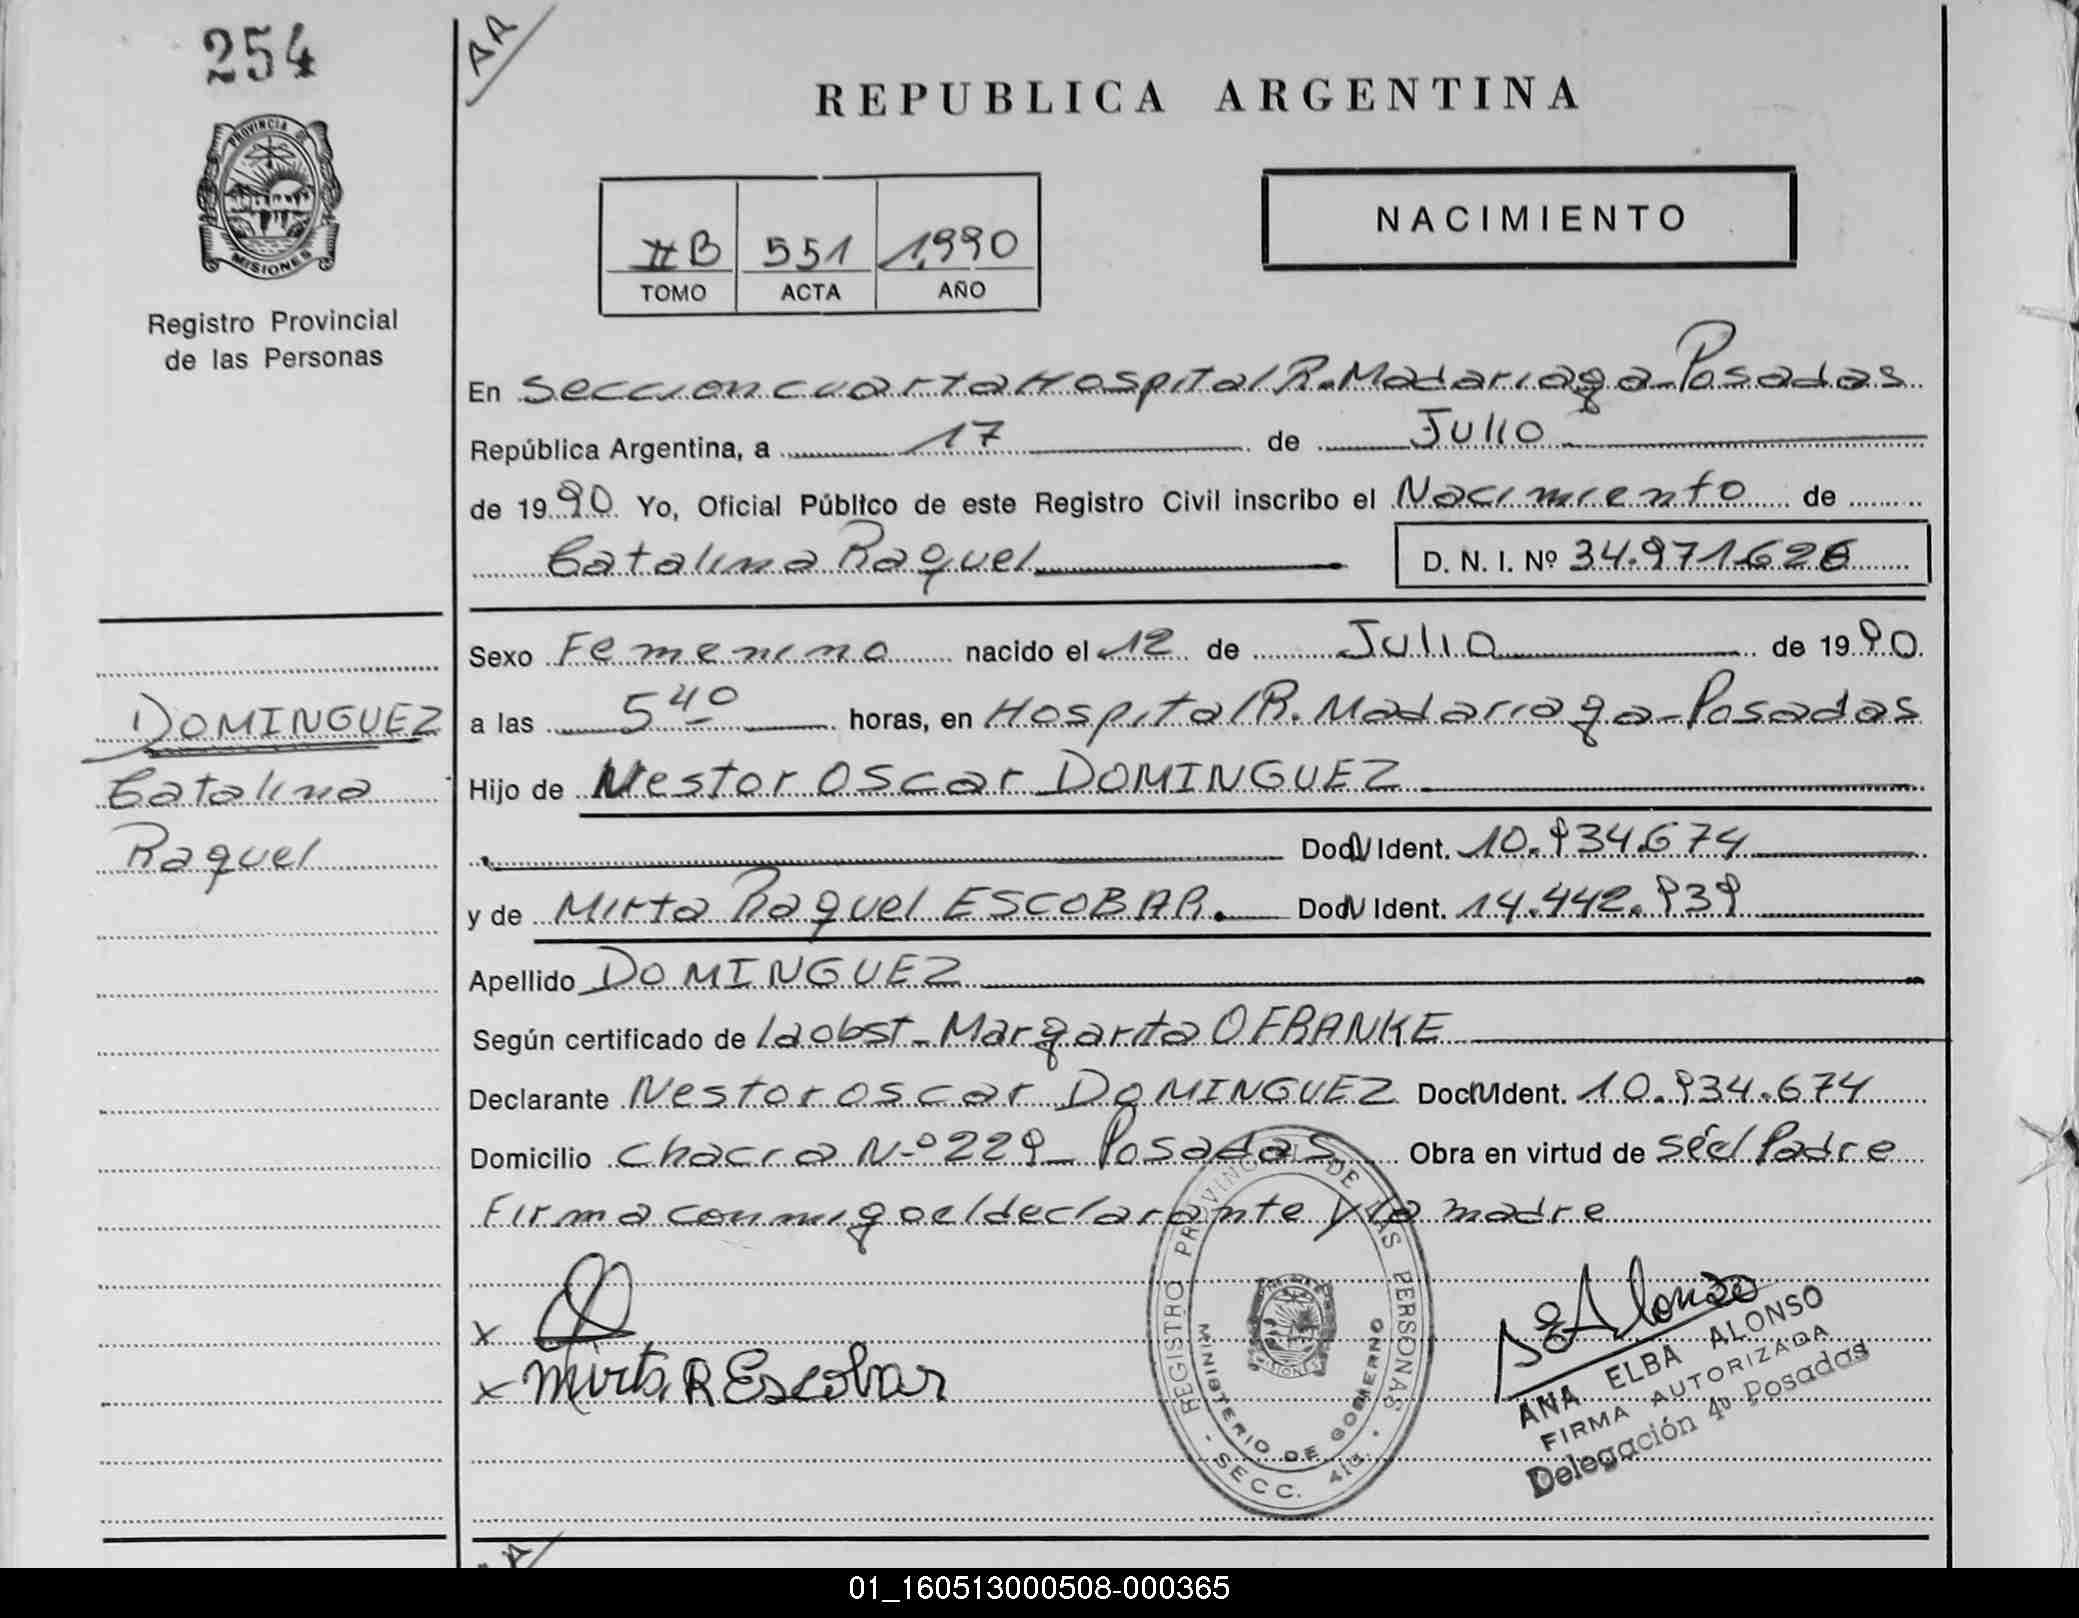 254
AA
REPUBLICA ARGENTINA
PROVINCIA DE
MISIONES
Registro Provincial
de las Personas
IIB 551 1990
TOMO ACTA AÑO
NACIMIENTO
En Seccion cuarta Hospital R. Madariaga - Posadas
República Argentina, a 17 de Julio
de 1990 Yo, Oficial Público de este Registro Civil inscribo el Nacimiento de
Catalina Raquel D. N. I. Nº 34.971.626
Sexo Femenino nacido el 12 de Julio de 1990
a las 5 40 horas, en Hospital R. Madariaga - Posadas
Hijo de Nestor Oscar DOMINGUEZ
Ident. 10.934.674
y de Mirta Raquel ESCOBAR. Ident. 14.442.939
Apellido DOMINGUEZ
Según certificado de la obst - Margarita O FRANKE
Declarante Nestor Oscar DOMINGUEZ Ident. 10.934.674
Domicilio Chacra Nº 229 - Posadas Obra en virtud de Ser el Padre
Firma conmigo el declarante y la madre
DOMINGUEZ
Catalina
Raquel
x
x Mirta R Escobar
REGISTRO PROVINCIAL DE LAS PERSONAS
MINISTERIO DE GOBIERNO
- SECC. 4ta. -
Alonso
ANA ELBA ALONSO
FIRMA AUTORIZADA
Delegación 4º Posadas
01_160513000508-000365